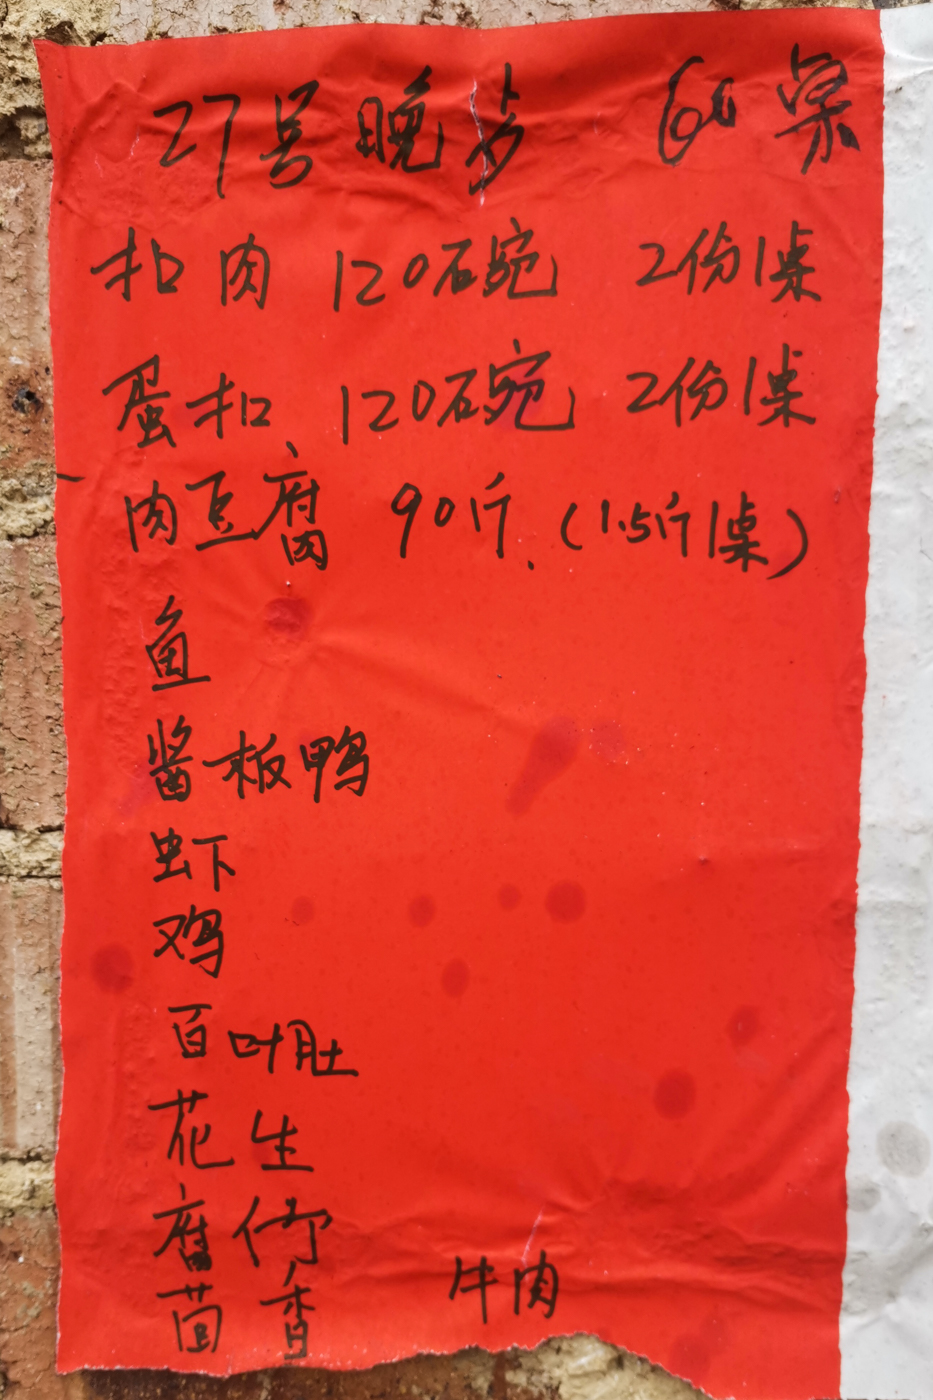 27号晚步 60桌
扣肉 120石碗 2份1桌
蛋扣 120石碗 2份1桌
肉豆腐 90斤.(1.5斤1桌)
鱼
酱板鸭
虾
鸡
百叶肚
花生
腐竹
茴香 牛肉